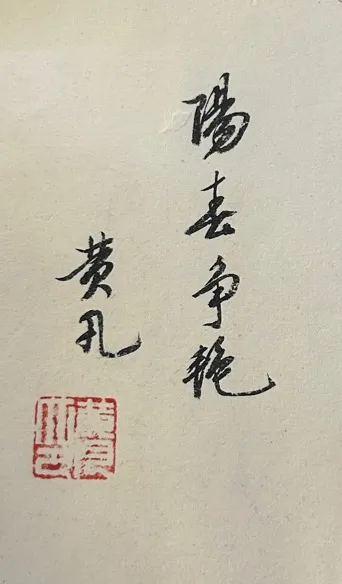 陽春争艳
黄